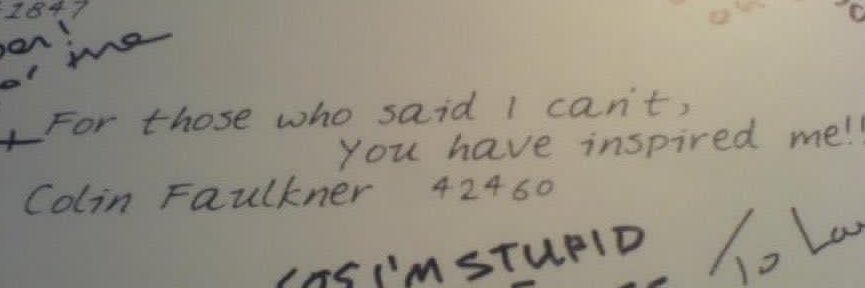 1847
me
For those who said I can't,
You have inspired me!!
Colin Faulkner 42460
I'M STUPID
To